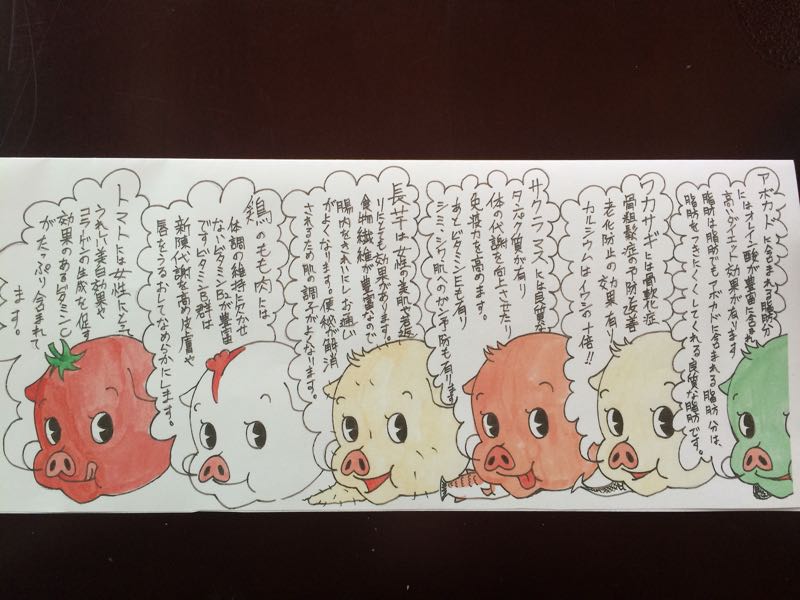 アボカドに含まれる脂肪分
にはオレイン酸が豊富に含まれ
高いダイエット効果が有ります
脂肪は脂肪でもアボカドに含まれる脂肪分は、
脂肪をつきにくくしてくれる良質な脂肪です。
ワカサギには骨軟化症
骨粗鬆症の予防改善
老化防止の効果有り
カルシウムはイワシの十倍!!
サクラマスには良質な
タンパク質が有り
体の代謝を向上させたり
免疫力を高めます。
あとビタミンEも有り
シミ、シワ、肌へのガン予防も有ります
長芋は女性の美肌や
りにとても効果があります。
食物繊維が豊富なので
腸内をきれいにしお通じ
がよくなります。便秘が解消
されるため肌の調子がよくなります。
鶏のもも肉には
体調の維持に欠かせ
ないビタミンB2が豊富
ですビタミンB群は
新陳代謝を高め皮膚や
唇をうるおしてなめらかにします。
トマトには女性にとって
うれしい美白効果や
コラーゲンの生成を促す
効果のあるビタミンC
がたっぷり含まれて
ます。